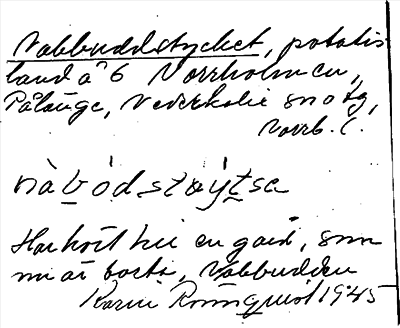 Nabbuddstycket, potatis-
land å G Norrholmen,
Pålänge, Nederkalix snotg,
Norrb. l.
nàbódstøytsə
Har hört till en gård, som
nu är borta, Nabbudden
Karin Rönnquist 1945